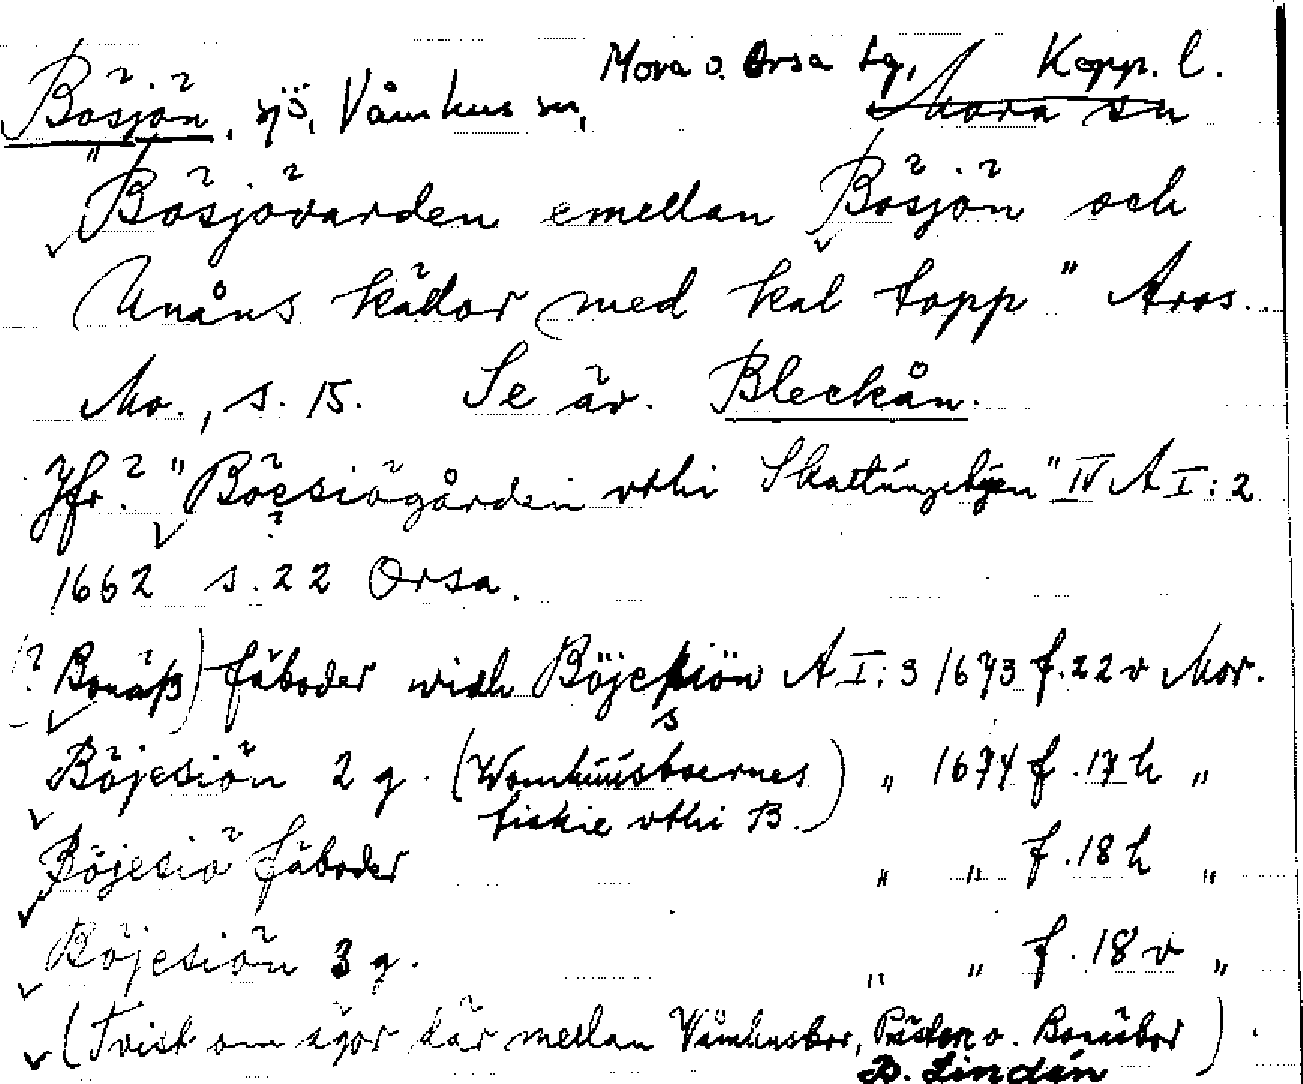 Bösjön, sjö, Våmhus sn, Mora o. Orsa tg, Kopp. l.
Mora sn
"Bösjövarden emellan Bösjön och
Unåns källor med kal topp" Aros.
Mo., s. 15. Se äv. Bleckån.
Jfr? "Böesiögården vthi Skattungebyn" IV A I:2
1662 s. 22 Orsa.
(? Bonäß) fäboder widh Böjesiön A I:3 1673 f. 22 v Mor.
Böjesiön 2 g. (Womhuusboernes " 1674 f. 17 h "
fiskie vthi B.)
Böjesiö fäboder " " f. 18 h "
Böjesiön 3 g. " " f. 18 v "
(Tvist om ägor där mellan Våmhusbor, o. Bonäsbor).
D. Lindén